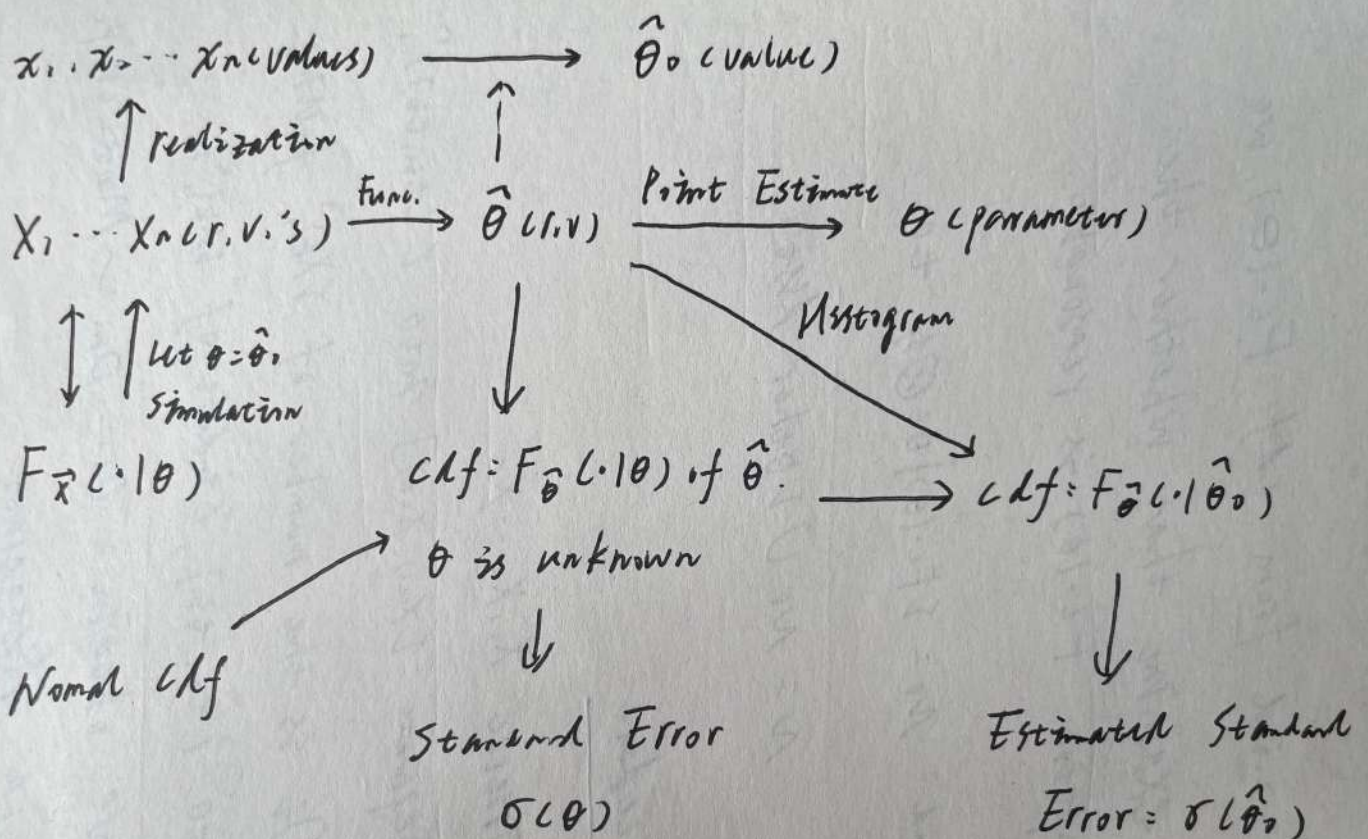 x₁, x₂ ⋯ xₙ (values) ⟶ θ̂₀ (value)
↑ realization
X₁ ⋯ Xₙ (r.v.'s) Func. ⟶ θ̂ (r.v) Point Estimate ⟶ θ (parameter)
Histogram
↕ ↑ let θ = θ̂₀
simulation
F_X⃗ (·|θ)
cdf: F_θ̂ (·|θ) of θ̂. ⟶ cdf: F_θ̂ (·|θ̂₀)
θ is unknown
Nomal cdf
Standard Error
σ(θ)
Estimated Standard
Error = σ(θ̂₀)